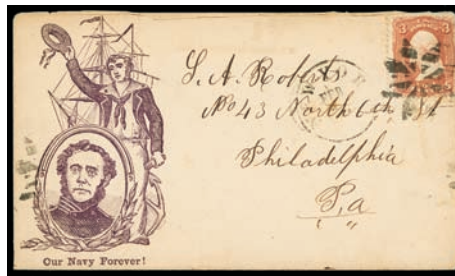 3 3
S. A. Roberts
No 43 North 6th St
Philadelphia
Pa
Our Navy Forever!